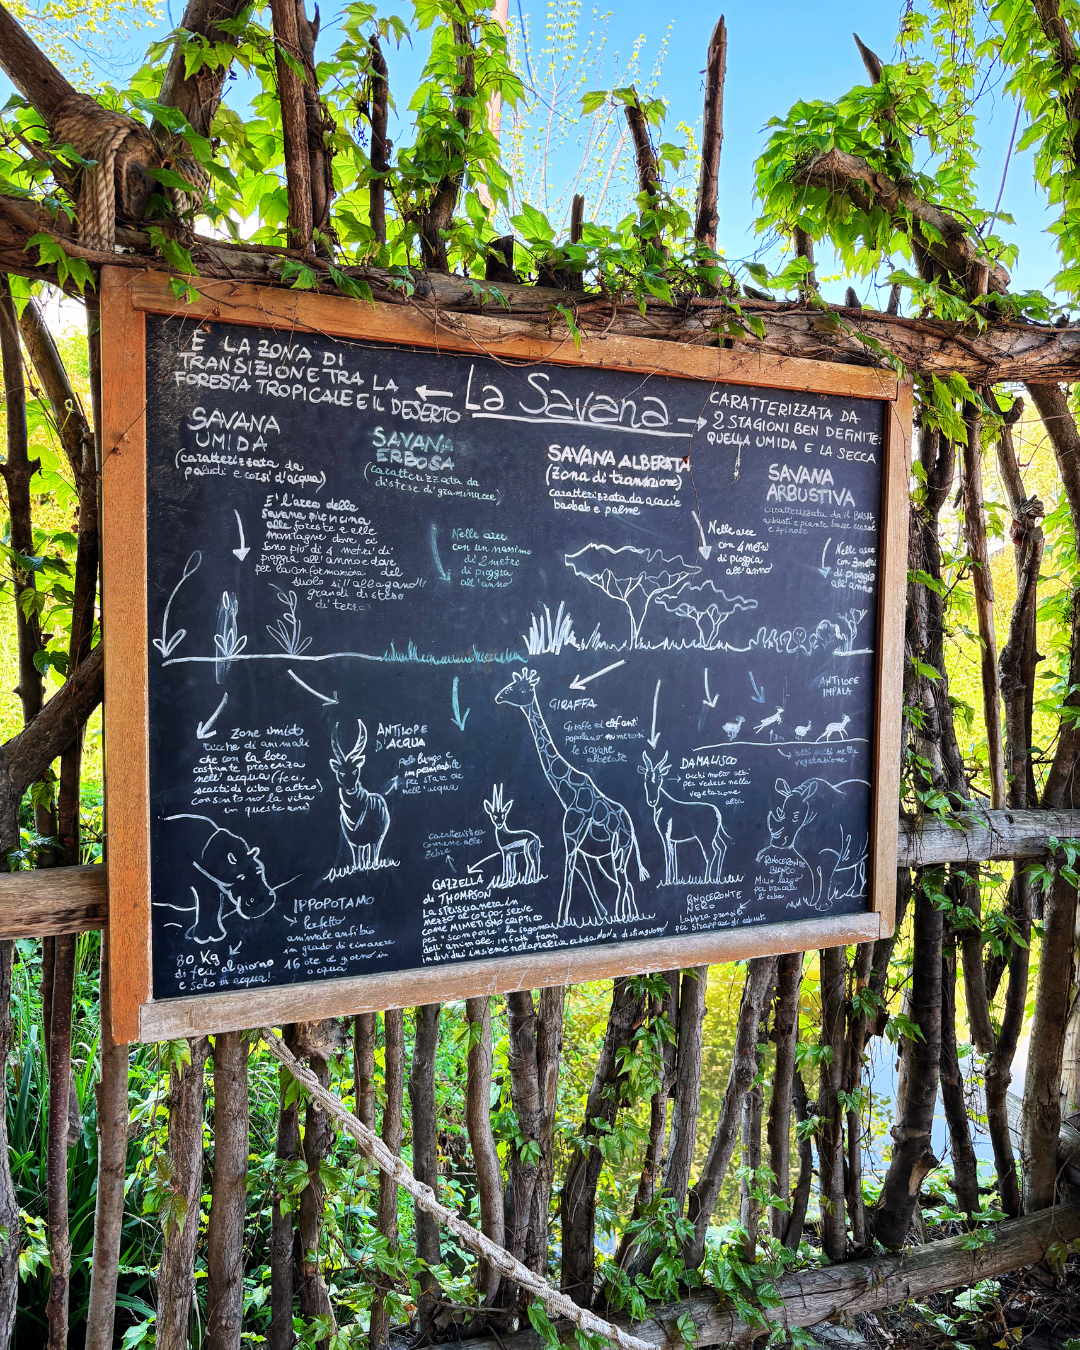 È LA ZONA DI
TRANSIZIONE TRA LA
FORESTA TROPICALE E IL DESERTO
La Savana
CARATTERIZZATA DA
2 STAGIONI BEN DEFINITE:
QUELLA UMIDA E LA SECCA
SAVANA
UMIDA
(caratterizzata da
paludi e corsi d'acqua)
E' l'area della
Savana più vicina
alle foreste e alle
montagne dove ci
sono più di 4 metri di
pioggia all'anno e dove
per la conformazione del
suolo si allagano
grandi distese
di terra
SAVANA
ERBOSA
(caratterizzata da
distese di graminacee)
Nelle aree
con un massimo
di 2 metri
di pioggia
all'anno
SAVANA ALBERATA
(zona di transizione)
caratterizzata da acacie
baobab e palme
Nelle aree
con 4 metri
di pioggia
all'anno
SAVANA
ARBUSTIVA
caratterizzata da il BUSH
arbusti e piante basse
e spinose
Nelle aree
con 3 metri
di pioggia
all'anno
Zone umide
ricche di animali
che con la loro
costante presenza
nell'acqua (feci,
scarti di cibo e altro)
consentono la vita
in queste zone
ANTILOPE
D'ACQUA
pelo lungo e
impermeabile
per stare
nell'acqua
GIRAFFA
Giraffe ed elefanti
popolano numerosi
le savane
alberate
DAMALISCO
occhi molto alti
per vedere nella
vegetazione
alta
ANTILOPE
IMPALA
nella
vegetazione
IPPOPOTAMO
Perfetto
animale anfibio
in grado di rimanere
16 ore al giorno in
acqua
80 Kg
di feci al giorno
e solo in acqua!
caratteristica
comune alle
GAZZELLA
di THOMPSON
La striscia nera in
mezzo al corpo, serve
come MIMETISMO CRIPTICO
per "scomporre" la sagoma
dell'animale: infatti tanti
individui insieme nella prateria calda non si distinguono
RINOCERONTE
NERO
Labbra prensile
per strappare gli arbusti
RINOCERONTE
BIANCO
Muso largo
per brucare
l'erba